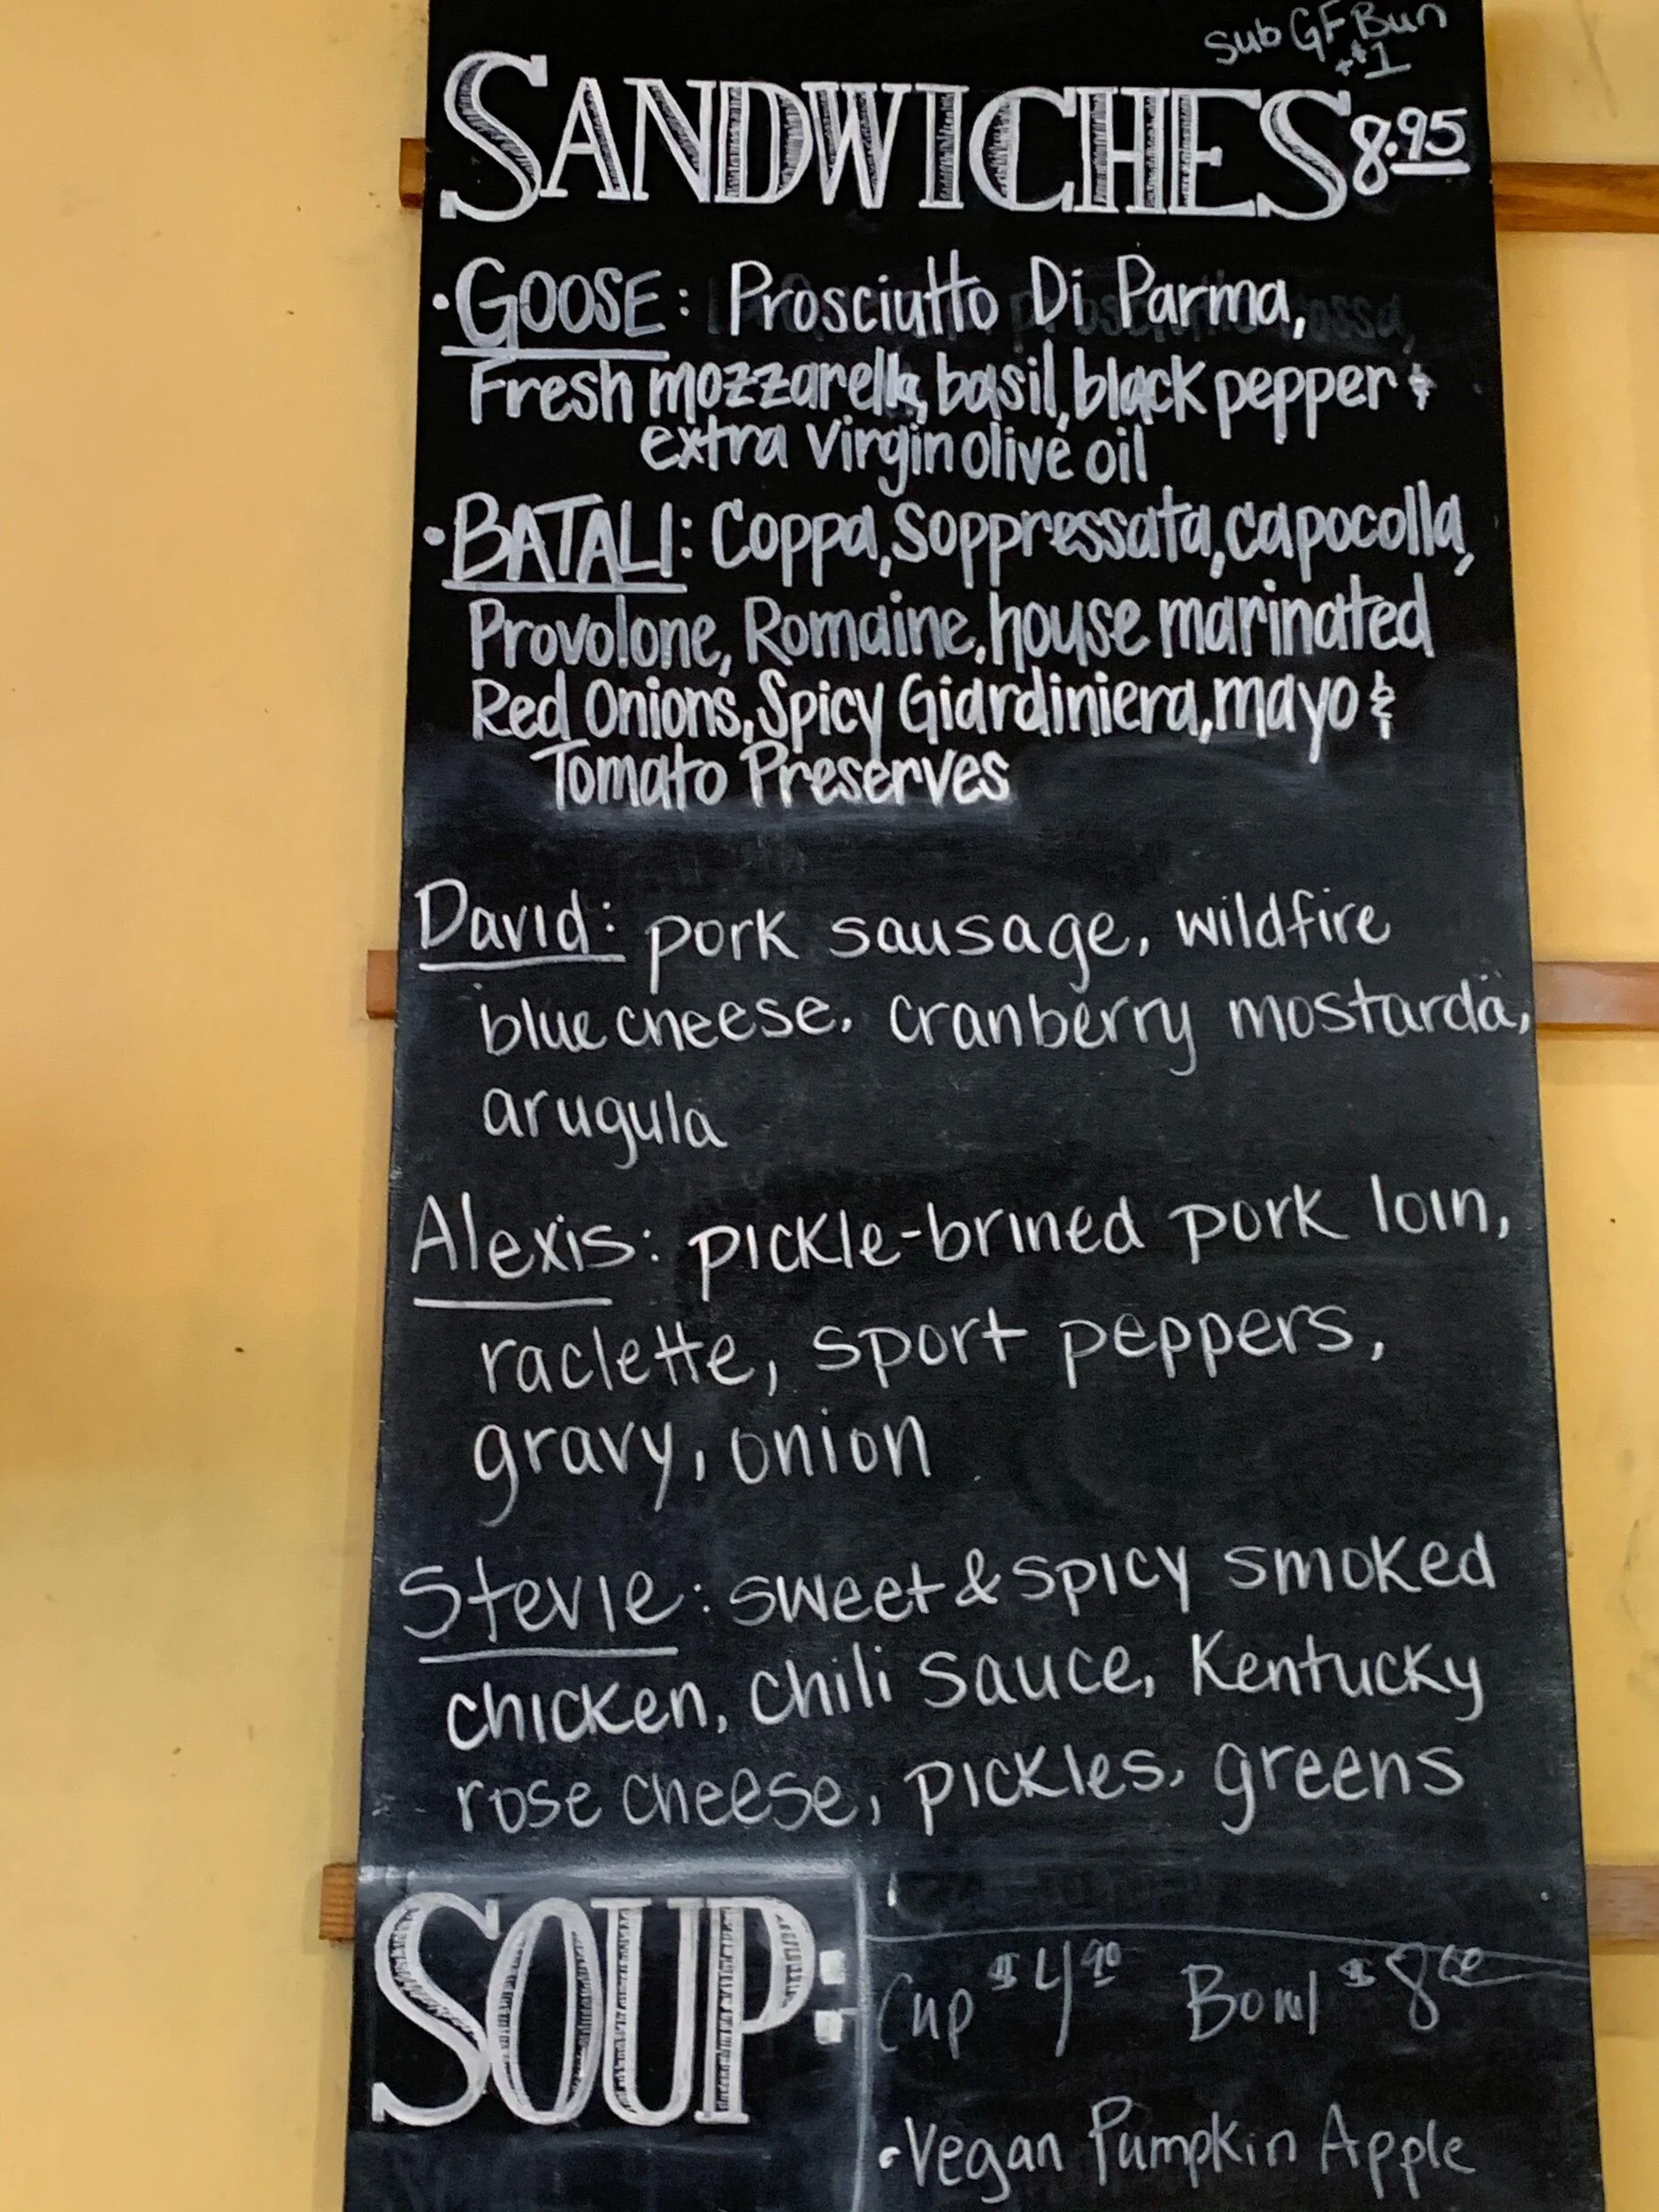 Sub GF Bun
+$1
SANDWICHES 8.95
• GOOSE: Prosciutto Di Parma,
Fresh mozzarella, basil, black pepper &
extra Virgin olive oil
• BATALI: Coppa, Soppressata, capocolla,
Provolone, Romaine, house marinated
Red Onions, Spicy Giardiniera, mayo &
Tomato Preserves
David: pork sausage, wildfire
blue cheese, cranberry mostarda,
arugula
Alexis: pickle-brined pork loin,
raclette, sport peppers,
gravy, onion
Stevie: sweet & spicy smoked
chicken, chili sauce, Kentucky
rose cheese, pickles, greens
SOUP:
Cup $4 90 Bowl $8
• Vegan Pumpkin Apple